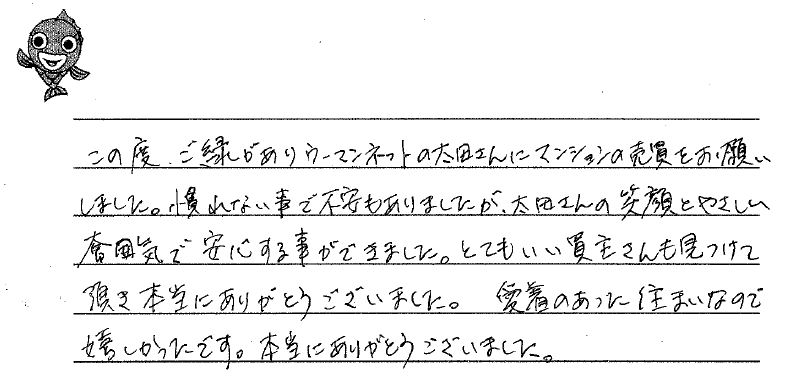 この度、ご縁がありウーマンネットの太田さんにマンションの売買をお願い
しました。慣れない事で不安もありましたが、太田さんの笑顔とやさしい
雰囲気で安心する事ができました。とてもいい買主さんも見つけて
頂き本当にありがとうございました。 愛着のあった住まいなので
嬉しかったです。本当にありがとうございました。